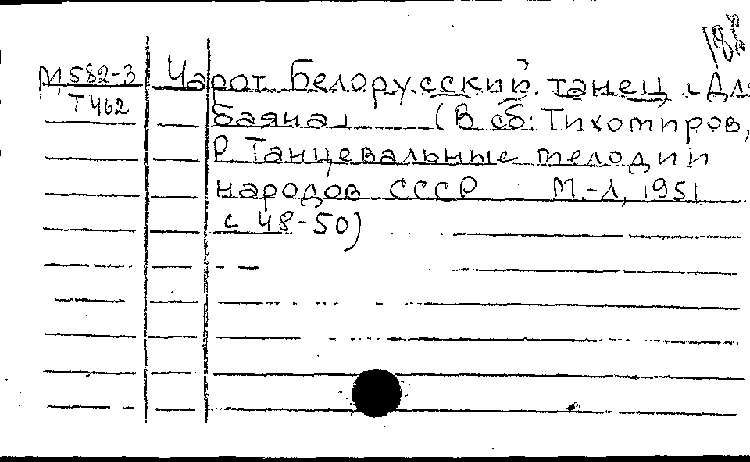 188
М 582-3 Чарот. Белорусский танец. [Для
Т 462 баяна] (В сб: Тихомиров,
Р. Танцевальные мелодии
народов СССР М.-Л, 1951
с 48-50)